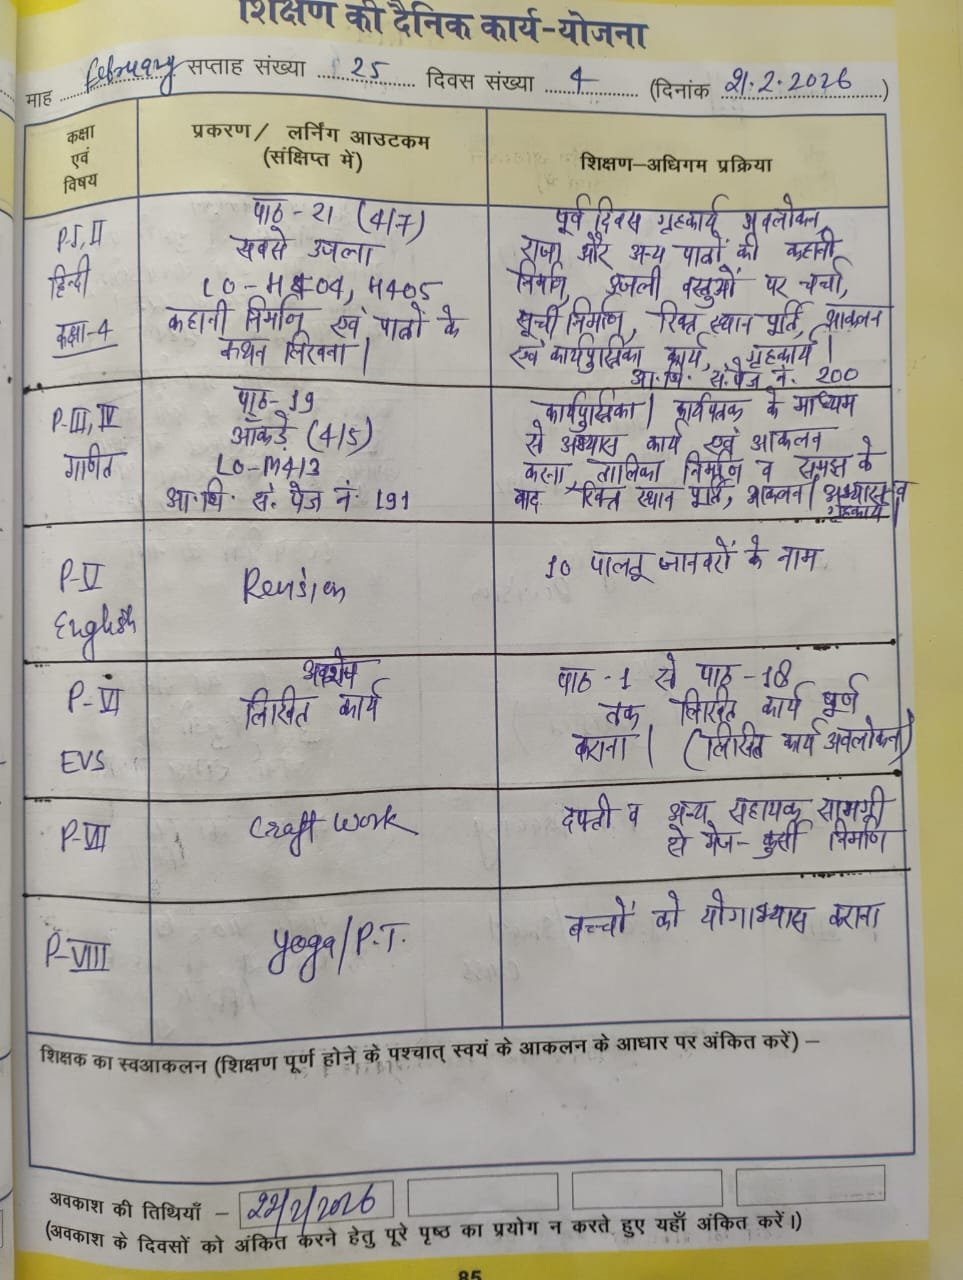 शिक्षण की दैनिक कार्य-योजना
माह February सप्ताह संख्या 25 दिवस संख्या 4 (दिनांक 21.2.2026)
कक्षा एवं विषय
प्रकरण/ लर्निंग आउटकम (संक्षिप्त में)
शिक्षण-अधिगम प्रक्रिया
P-I, II
हिन्दी
कक्षा-4
पाठ - 21 (4/7)
सबसे उजला
LO-H404, H405
कहानी निर्माण एवं पात्रों के
कथन लिखना।
पूर्व दिवस गृहकार्य अवलोकन,
राजा और अन्य पात्रों की कहानी
निर्माण, उजली वस्तुओं पर चर्चा,
सूची निर्माण, रिक्त स्थान पूर्ति, आकलन
एवं कार्यपुस्तिका कार्य, गृहकार्य।
आ.धि. सं. पेज नं. 200
P-III, IV
गणित
पाठ-19
आँकड़े (4/5)
LO-M413
आ.धि. सं. पेज नं. 191
कार्यपुस्तिका/ कार्यपत्रक के माध्यम
से अभ्यास कार्य एवं आकलन
करना, तालिका निर्माण व समझ के
बाद रिक्त स्थान पूर्ति, आकलन। अभ्यास व
गृहकार्य।
P-V
English
Revision
10 पालतू जानवरों के नाम
P-VI
EVS
अवशेष
लिखित कार्य
पाठ-1 से पाठ-18
तक लिखित कार्य पूर्ण
कराना। (लिखित कार्य अवलोकन)
P-VII
Craft Work
दफ्ती व अन्य सहायक सामग्री
से मेज-कुर्सी निर्माण
P-VIII
Yoga/P.T.
बच्चों को योगाभ्यास कराना
शिक्षक का स्वआकलन (शिक्षण पूर्ण होने के पश्चात् स्वयं के आकलन के आधार पर अंकित करें) –
अवकाश की तिथियाँ – 22/2/2026
(अवकाश के दिवसों को अंकित करने हेतु पूरे पृष्ठ का प्रयोग न करते हुए यहाँ अंकित करें।)
85